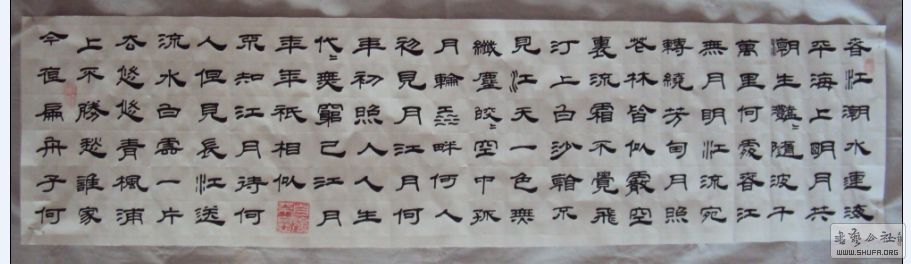 春江潮水連海
平海上明月共
潮生灩〻隨波千
萬里何處春江
無月明江流宛
轉繞芳甸月照
花林皆似霰空
裏流霜不覺飛
汀上白沙看不
見江天一色無
纖塵皎〻空中孤
月輪江畔何人
初見月江月何
年初照人人生
代〻無窮已江月
年年祇相似
不知江月待何
人但見長江送
流水白雲一片
去悠悠青楓浦
上不勝愁誰家
今夜扁舟子何
书艺公社
WWW.SHUFA.ORG